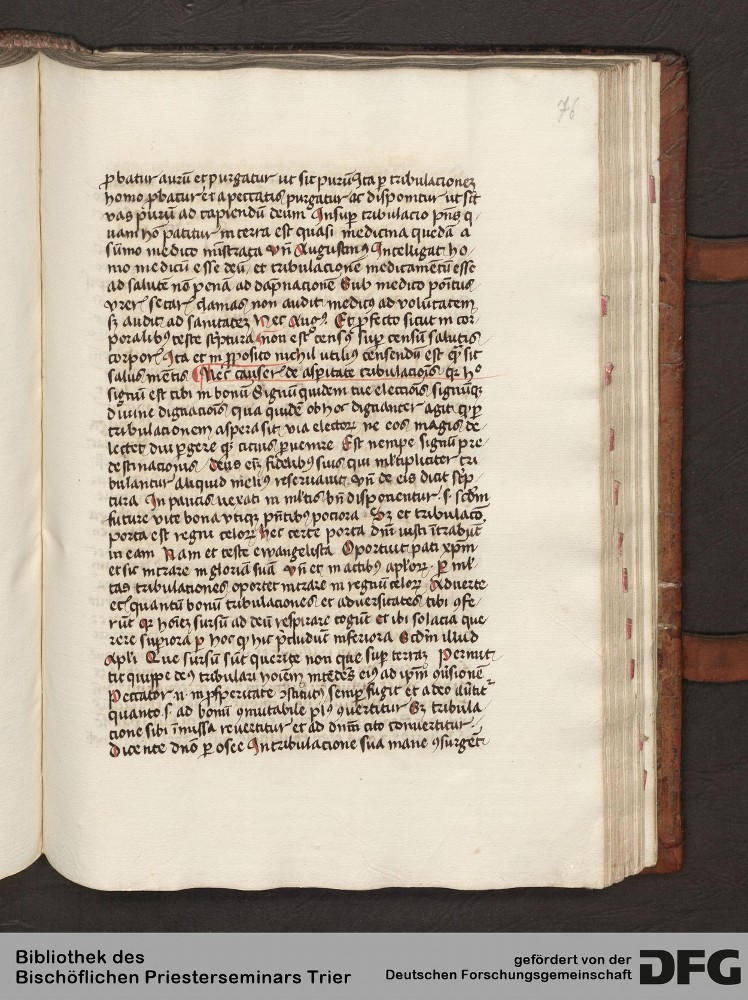 76
ꝓbatur aurū et purgatur ut sit purū Ita ꝑ tribulacionez
homo ꝓbatur et a peccatis purgatur ac disponitur ut sit
vas purū ad capiendū deum Insuꝑ tribulacio pn̄s q
uam ho patitur in terra est quasi medicina quedā a
sūmo medico mīstrata vn̄ Augustinꝰ Intelligat ho
mo medicū esse deū et tribulacionē medicamētū esse
ad salutē nō penā ad dāpnacionē Sub medico poitus
vreris secaris clamas non audit medicꝰ ad voluntatem
sꝫ audit ad sanitatez Hec Augꝰ Et ꝓfecto sicut in cor
poralibꝰ teste sc̄ptura non est censꝰ suꝑ censū salutis
corporis Ita et in ꝓposito nichil utiliꝰ censendū est qͣ sit
salus mētis Nec causeris de asꝑitate tribulacōis qꝛ hͦ
signū est tibi in bonū Signū quidem tue electiōis signūqꝫ
diuine dignaciōis qua quidē ob hoc dignanter agit qͩ ꝑ
tribulacionem aspera sit via electoꝝ ne eos magis de
lectet diu ꝑgere qͣ citius ꝑuenire Est nempe signū pre
destinacionis deus eī fidelibꝰ suis qui ml̄tipliciter tri
bulantur aliquid meliꝰ reseruauit vn̄ de eis dicit sc̄p
tura In paucis vexati in ml̄tis bn̄ disponentur .s. scd̄m
future vite bona vtiqꝫ pn̄tibꝰ pociora Sꝫ et tribulacō
porta est regni celoꝝ hec certe porta dn̄i iusti ītrabūt
in eam Nam et teste ewangelista Oportuit pati xp̄m
et sic intrare in gloriā suā vn̄ et in actibꝰ apl̄oꝝ ꝑ ml̄
tas tribulationes oportet intrare in regnū celoꝝ Aduerte
et quantū bonū tribulaciones et aduersitates tibi ꝯfe
rūt qꝛ hoīez sursū ad deū respirare cogūt et ibi solacia que
rere suꝑiora ꝑ hoc qͩ hic p̄cludūt inferiora Scd̄m illud
Apl̄i Que sursū sūt querite non que suꝑ terraꝫ Permit
tit quippe deꝰ tribulari hoīem intēdēs eiꝰ ad ip̄m ꝯūsionē
Peccator .n. in ꝓsꝑitate ꝯstitutꝰ semꝑ fugit et a deo
quanto .s. ad bonū ꝯmutabile plꝰ ꝯuertitur Sꝫ tribula
cione sibi īmissa reuertitur et ad dn̄m cito conuertitur
Dicente dn̄o ꝑ osee In tribulacione sua mane ꝯsurgēt
Bibliothek des
Bischöflichen Priesterseminars Trier
gefördert von der
Deutschen Forschungsgemeinschaft
DFG